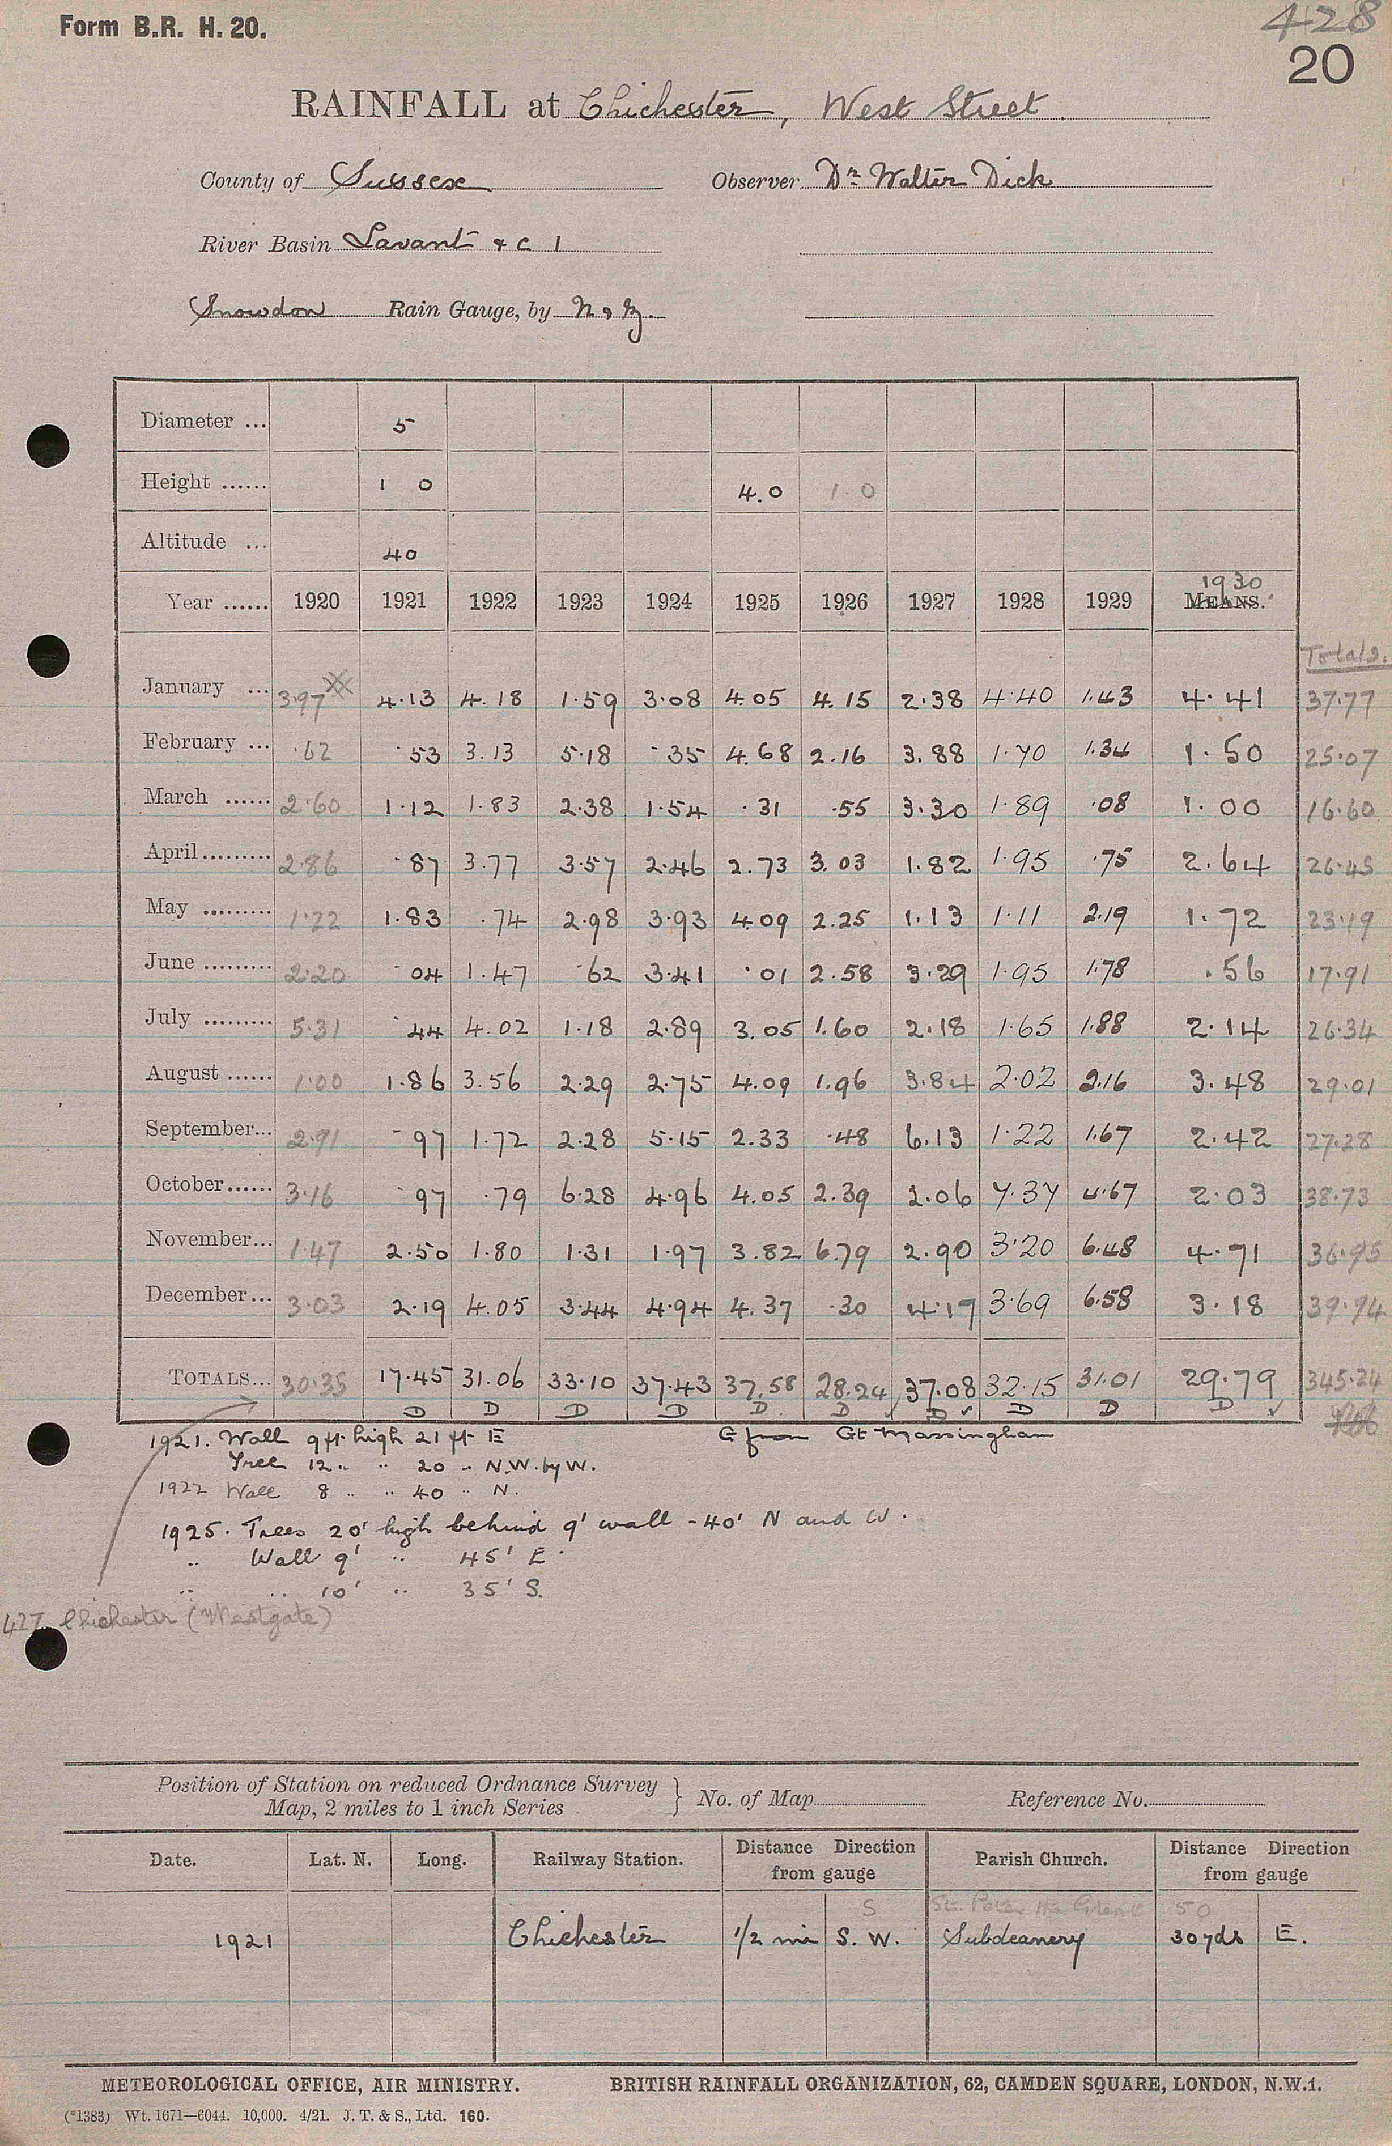 Form B.R. H. 20.
428
20
RAINFALL at Chichester, West Street.
County of Sussex Observer Dr Walter Dick
River Basin Lavant & c 1
Snowdon Rain Gauge, by N & Z.
Diameter ... 5
Height ...... 1 0 4.0 1.0
Altitude ... 40
1930
Year ...... 1920 1921 1922 1923 1924 1925 1926 1927 1928 1929 MEANS.
Totals.
January ... 3.97 4.13 4.18 1.59 3.08 4.05 4.15 2.38 4.40 1.43 4.41 37.77
February ... .62 .53 3.13 5.18 .35 4.68 2.16 3.88 1.70 1.34 1.50 25.07
March ...... 2.60 1.12 1.83 2.38 1.54 .31 .55 3.30 1.89 .08 1.00 16.60
April ......... 2.86 .87 3.77 3.57 2.46 2.73 3.03 1.82 1.95 .75 2.64 26.45
May ......... 1.22 1.83 .74 2.98 3.93 4.09 2.25 1.13 1.11 2.19 1.72 23.19
June ......... 2.20 .04 1.47 .62 3.41 .01 2.58 3.29 1.95 1.78 .56 17.91
July ......... 5.31 .44 4.02 1.18 2.89 3.05 1.60 2.18 1.65 1.88 2.14 26.34
August ...... 1.00 1.86 3.56 2.29 2.75 4.09 1.96 3.84 2.02 2.16 3.48 29.01
September... 2.91 .97 1.72 2.28 5.15 2.33 .48 6.13 1.22 1.67 2.42 27.28
October...... 3.16 .97 .79 6.28 4.96 4.05 2.39 2.06 7.37 4.67 2.03 38.73
November... 1.47 2.50 1.80 1.31 1.97 3.82 6.79 2.90 3.20 6.48 4.71 36.95
December... 3.03 2.19 4.05 3.44 4.94 4.37 .30 4.17 3.69 6.58 3.18 39.94
TOTALS... 30.35 17.45 31.06 33.10 37.43 37.58 28.24 37.08 32.15 31.01 29.79 345.24
D D D D D D D D D D
1921. Wall 9 ft high 21 ft E G from Gt Massingham
Tree 12 " " 20 " N.W. by W.
1922 Wall 8 " " 40 " N.
1925. Trees 20' high behind 9' wall - 40' N and W.
" Wall 9' " 45' E.
" " 10' " 35' S.
427. Chichester (Westgate)
Position of Station on reduced Ordnance Survey
Map, 2 miles to 1 inch Series } No. of Map Reference No.
Date. Lat. N. Long. Railway Station. Distance Direction from gauge Parish Church. Distance Direction from gauge
S St. Peter the Great 50
1921 Chichester 1/2 mi S. W. Subdeanery 30 yds E.
METEOROLOGICAL OFFICE, AIR MINISTRY. BRITISH RAINFALL ORGANIZATION, 62, CAMDEN SQUARE, LONDON, N.W.1.
(*1383) Wt. 1671—6044. 10,000. 4/21. J. T. & S., Ltd. 160.